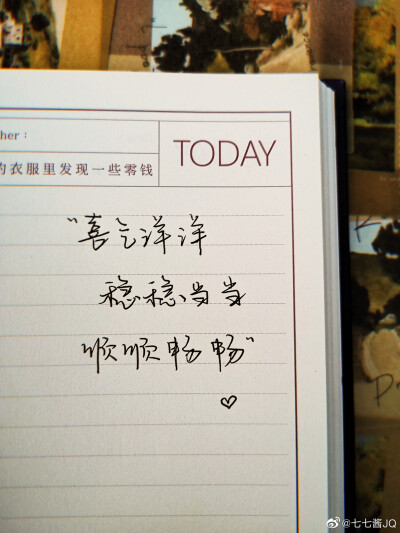 her：
的衣服里发现一些零钱
TODAY
“喜气洋洋
稳稳当当
顺顺畅畅”
♡
@七七酱JQ